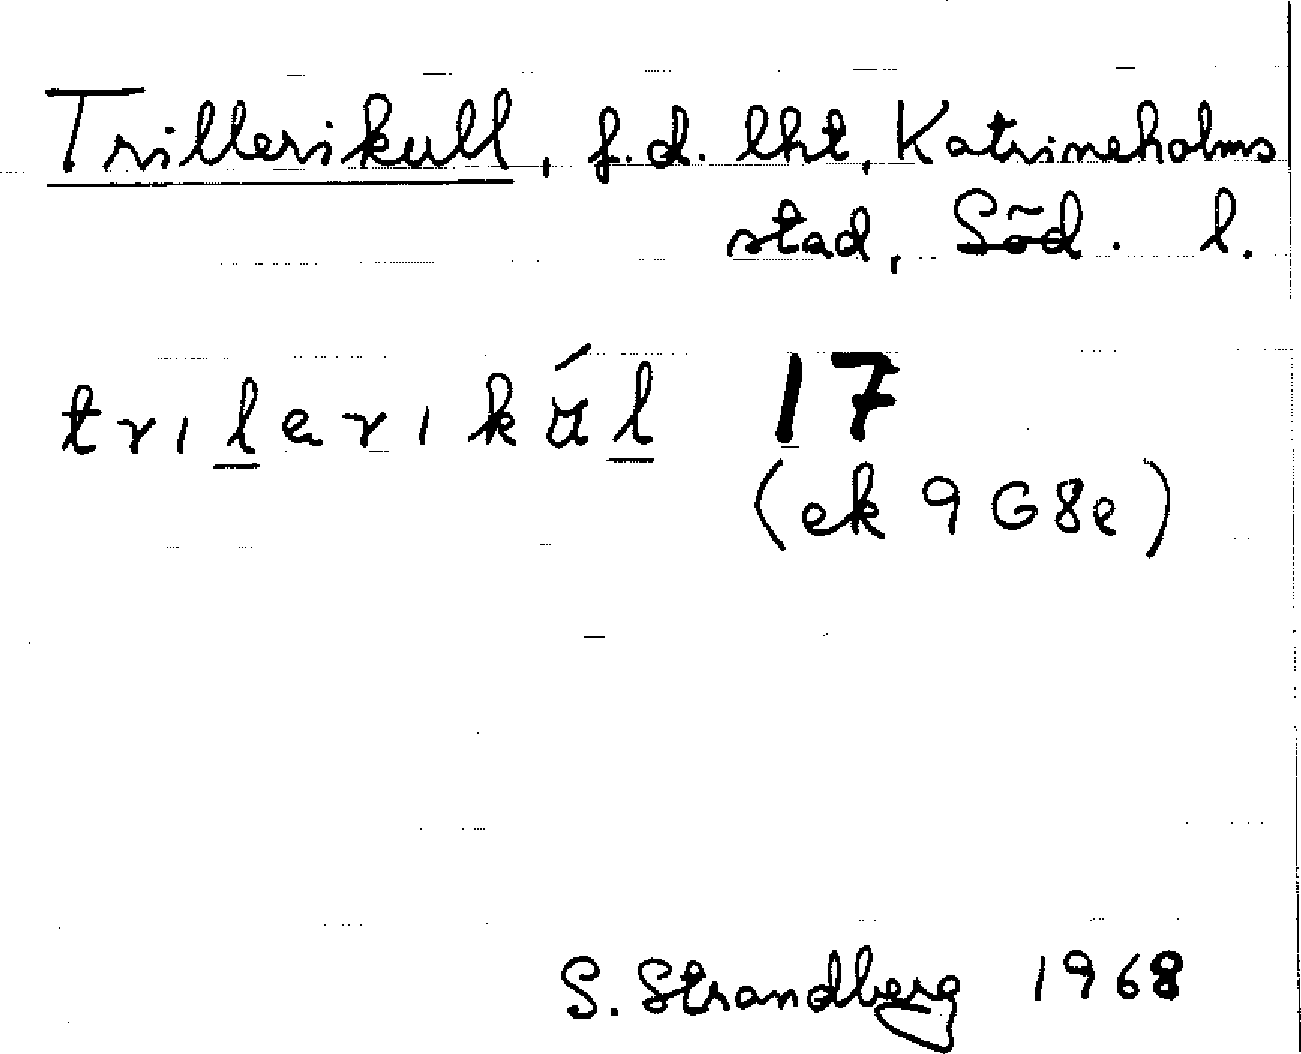 Trillerikull, f.d. lht, Katrineholms
stad, Söd. l.
trılerıkúl 17
(ek 9 G 8e)
S. Strandberg 1968